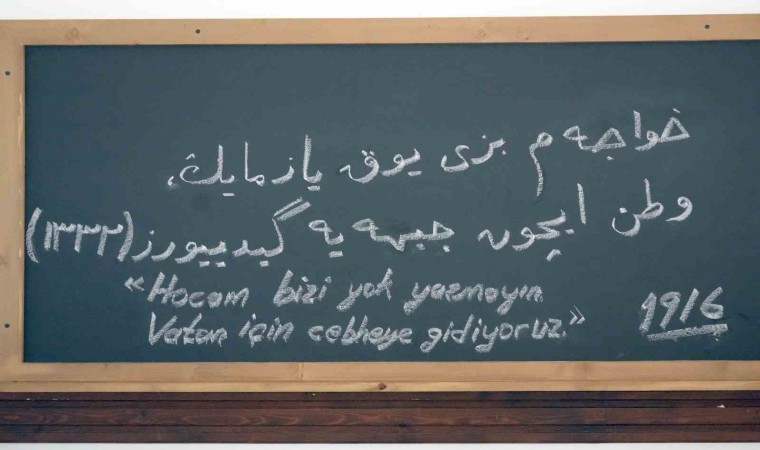 خواجه م بزی یوق یازمایڭ.
وطن ایچون جبهه یه گیدییورز (١٣٣٢)
«Hocam bizi yok yazmayın
Vatan için cebheye gidiyoruz.»
1916